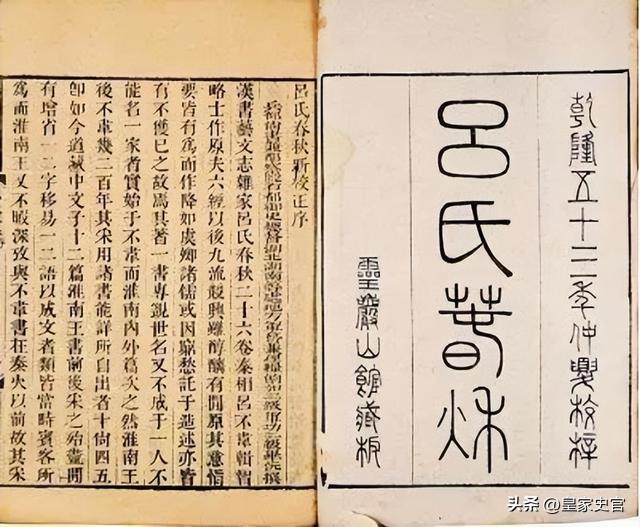 乾隆五十三年仲夏校梓
呂氏春秋
靈巖山館藏板
呂氏春秋新校正序
湖北湖南等處地方軍務兼理糧餉 畢沅撰
漢書藝文志雜家呂氏春秋二十六卷秦相呂不韋輯智
略士作原夫六經以後九流競興雖醇醨有間原其意恉
要皆有爲而作降如虞卿諸儒或因窮愁託于造述亦皆
有不獲已之故焉其著一書專覬世名又不成于一人不
能名一家者實始于不韋而淮南內外篇次之然淮南王
後不韋幾二百年其采用諸書能詳所自出者十尚四五
即如今道藏中文子十二篇淮南王書前後采之殆盡閒
有增省一二字移易一二語以成文者類皆當時賓客所
爲而淮南王又不暇深攷與不韋書在秦火以前故其采
头条 @皇家史官